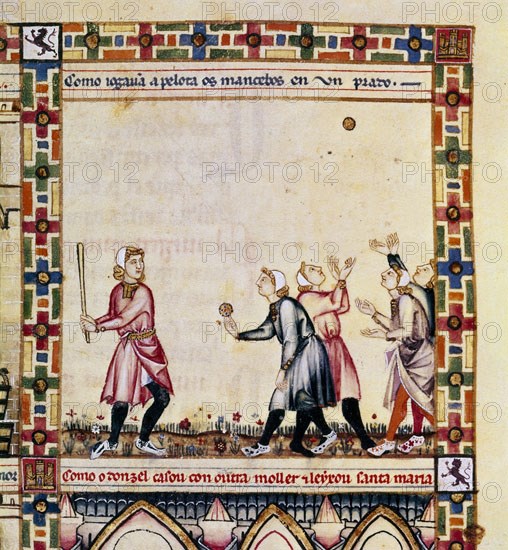 Como iogauã a pelota os mancebos en un prado.
Como o donzel casou con outra moller ⁊ leyxou santa maria
PHOTO12